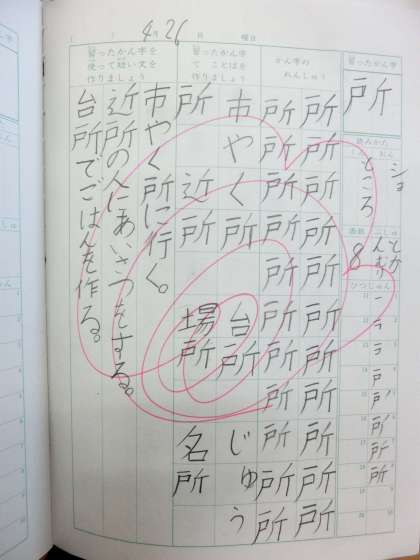 4月26日 曜日
習ったかん字
所
読みかた
ショ
ところ
画数
8
ぶしゅ
とかんむり
ひつじゅん
かん字の
れんしゅう
所所所所所所所所所所
所所所所所所所所所所
習ったかん字
で ことばを
作りましょう
市やく所 台所 じゅう
所 近所 場所 名所
習ったかん字を
使って短い文を
作りましょう
市やく所に行く。
近所の人にあいさつをする。
台所でごはんを作る。